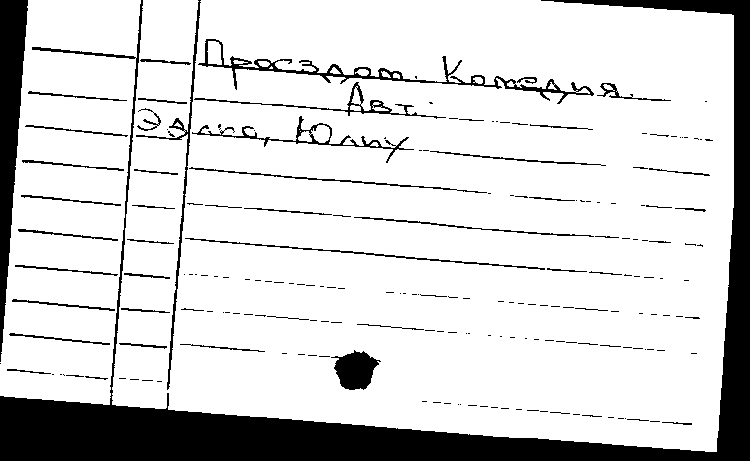 Проездом. Комедия.
Авт.:
Эдлис, Юлиу